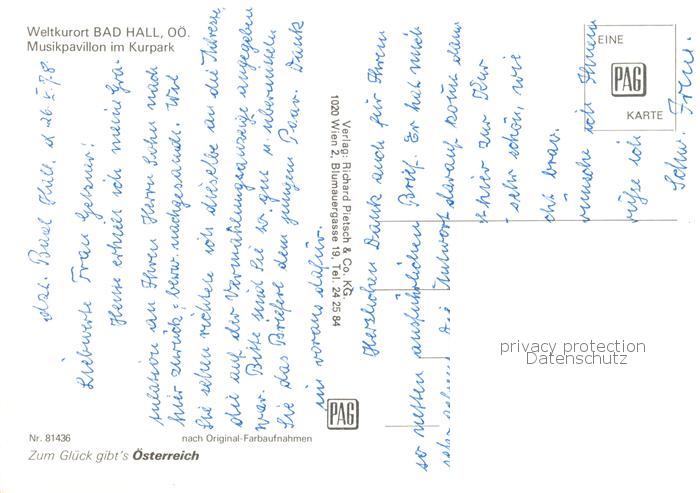 Weltkurort BAD HALL, OÖ.
Musikpavillon im Kurpark
dzt. Bad Hall, d. 26.X.78
Liebwerte Frau Getzner!
Heute erhielt ich meine Gra-
tulation an Ihren Herrn Sohn nach
hier zurück, bezw. nachgesandt. Wie
Sie sehen richtete ich dieselbe an die Adresse,
die auf der Vermählungsanzeige angegeben
war. Bitte sind Sie so gut u. übermitteln
Sie das Brieferl dem jungen Paar. Dank
im voraus dafür.
Herzlichen Dank auch für Ihren
so netten ausführlichen Brief. Er hat mich
sehr Antwort darauf
hier zur Kur
sehr schön, wie
brav.
wünsche ich Ihnen
ich
Schw.
Verlag: Richard Pietsch & Co. KG.
1020 Wien 2, Blumauergasse 19, Tel. 24 25 84
EINE
PAG
KARTE
PAG
privacy protection
Datenschutz
Nr. 81436
nach Original-Farbaufnahmen
Zum Glück gibt's Österreich